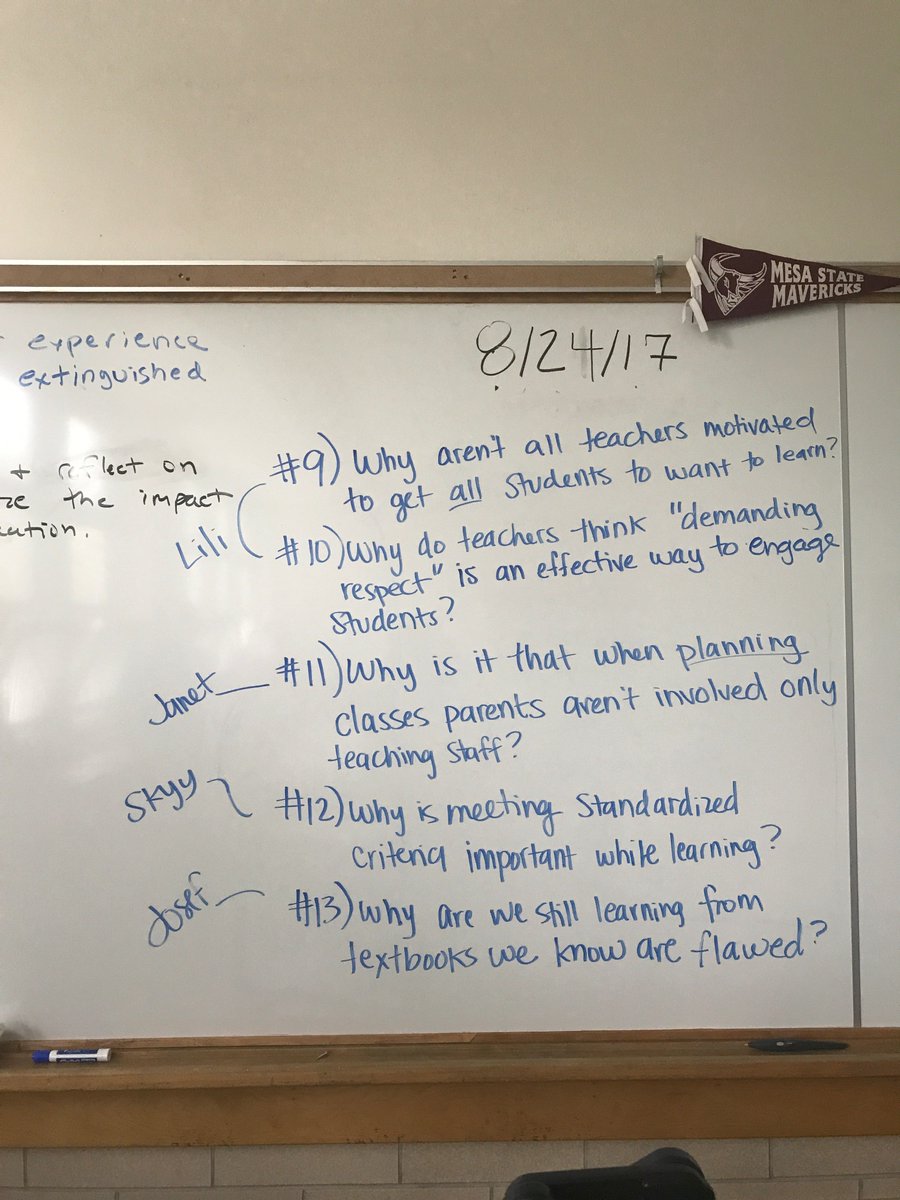 MESA STATE
MAVERICKS
experience
extinguished
8/24/17
+ reflect on
the impact
#9) Why aren't all teachers motivated
to get all students to want to learn?
Lili
#10) Why do teachers think "demanding
respect" is an effective way to engage
students?
Janet
#11) Why is it that when planning
classes parents aren't involved only
teaching staff?
Skyy
#12) Why is meeting standardized
criteria important while learning?
Josef
#13) Why are we still learning from
textbooks we know are flawed?